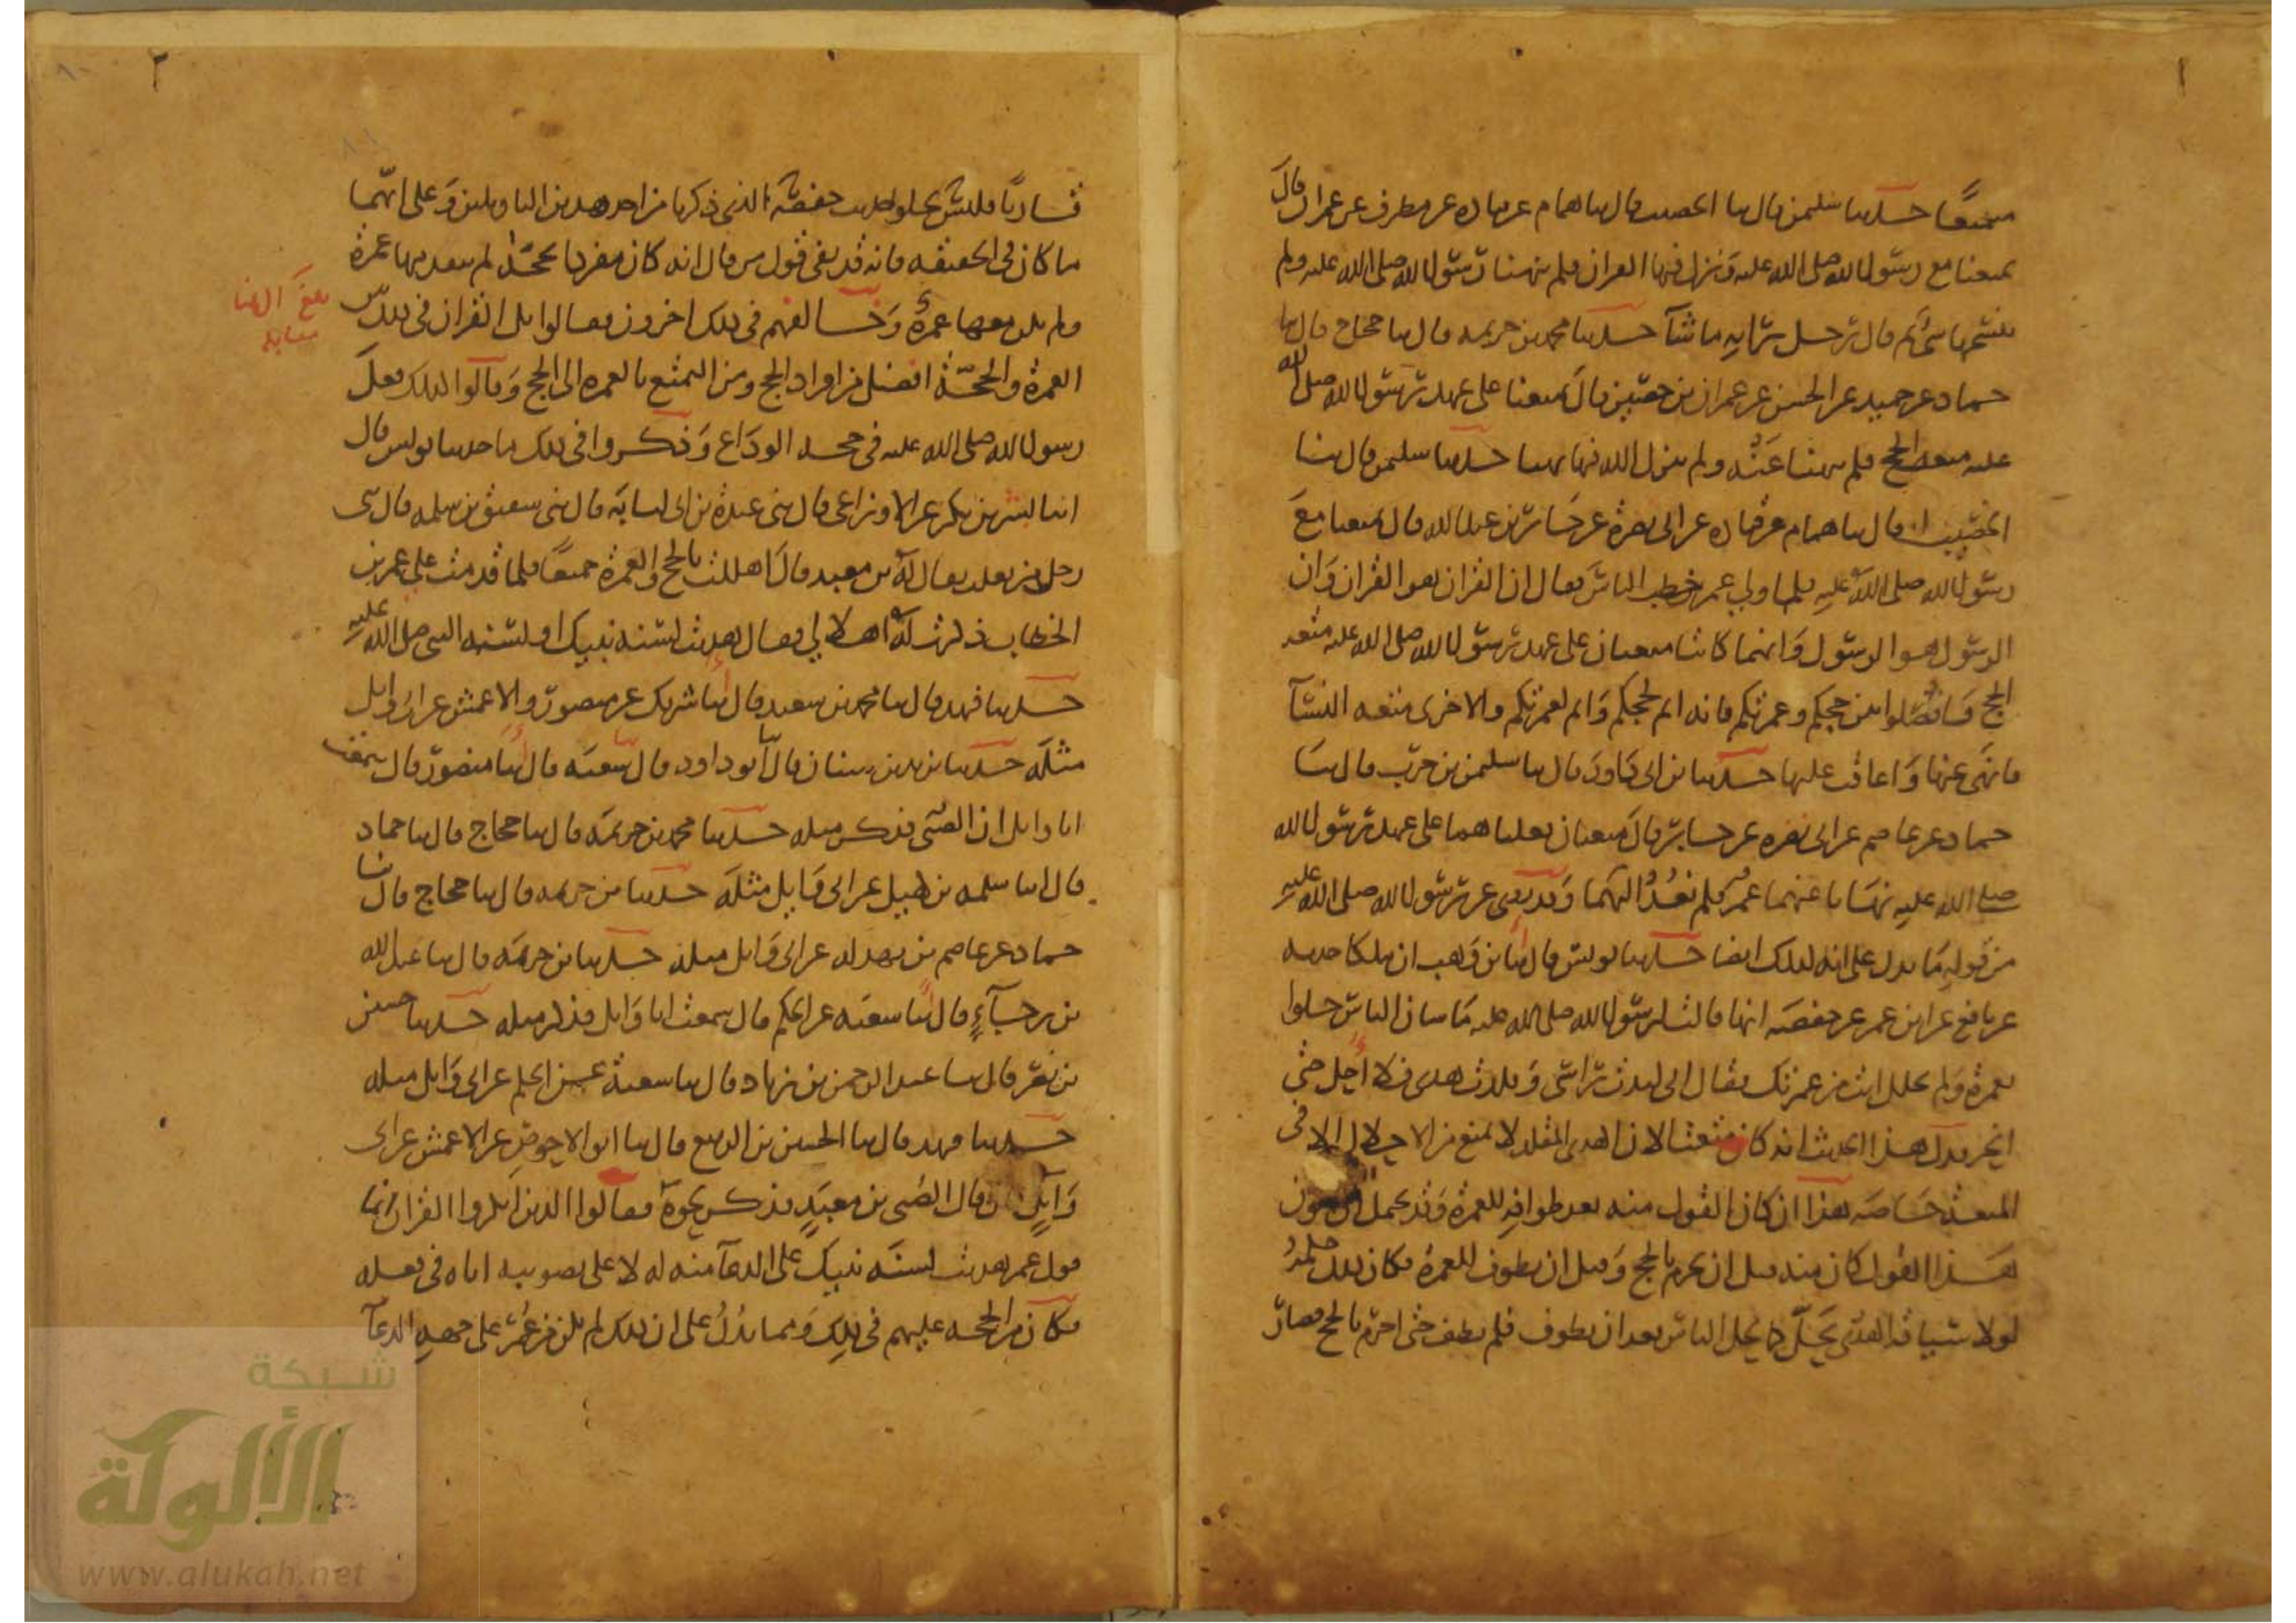 ١
متمتعا حدثنا سليمن قال ثنا الخصيب قال ثنا همام عن قتاده عن مطرف عن عمران قال
تمتعنا مع رسول الله صلى الله عليه ونزل فيها القران فلم ينهنا رسول الله صلى الله عليه ولم
ينسخها شيء ثم قال رجل برايه ما شآ حدثنا محمد بن خزيمه قال ثنا حجاج قال ثنا
حماد عن حميد عن الحسن عن عمران بن حصين قال تمتعنا على عهد رسول الله صلى الله
عليه متعة الحج فلم ينهنا عنه ولم ينزل الله فيها نهيا حدثنا سليمن قال ثنا
الخصيب قال ثنا همام عن قتاده عن ابي نضرة عن جابر بن عبد الله قال تمتعنا مع
رسول الله صلى الله عليه فلما ولي عمر خطب الناس فقال ان القران هو القران وان
الرسول هو الرسول وانهما كانتا متعتان على عهد رسول الله صلى الله عليه متعة
الحج فافصلوا بين حجكم وعمرتكم فانه اتم لحجكم واتم لعمرتكم والاخرى متعه النسآ
فانهى عنها واعاقب عليها حدثنا بن ابي داود قال ثنا سليمن بن حرب قال ثنا
حماد عن عاصم عن ابي نضره عن جابر قال متعتان فعلناهما على عهد رسول الله
صلى الله عليه نهانا عنهما عمر فلم نعد اليهما وقد روى عن رسول الله صلى الله عليه
من قوله ما يدل على انه كذلك ايضا حدثنا يونس قال انا بن وهب ان ملكا حدثه
عن نافع عن ابن عمر عن حفصه انها قالت لرسول الله صلى الله عليه ما شان الناس حلوا
بعمرة ولم تحلل انت من عمرتك فقال اني لبدت راسي وقلدت هديي فلا احل حتى
انحر فدل هذا الحديث انه كان متمتعا لان الهدي المقلد لا يمنع من الاحلال الا في
المتعة خاصه هذا ان كان القول منه بعد طوافه للعمرة وقد يحتمل ان يكون
هذا القول كان منه قبل ان يحرم بالحج وقبل ان يطوف للعمرة فكان ذلك حكمه
لولا سياقه الهدي يحل كما يحل الناس بعد ان يطوف فلم يطف حتى احرم بالحج فصار
٢
قارنا فليس يخلو حديث حفصة الذي ذكرنا من احد هذين التاويلين وعلى ايهما
ما كان في الحقيقه فانه قد نفى قول من قال انه كان مفردا بحجة لم يتقدمها عمرة
ولم يكن معها عمرة وخالفهم في ذلك اخرون فقالوا بل القران في ذلك بين
العمرة والحجة افضل من افراد الحج ومن التمتع بالعمره الى الحج وقالوا كذلك فعل
رسول الله صلى الله عليه في حجة الوداع وذكروا في ذلك ما حدثنا يونس قال
انا بشر بن بكر عن الاوزاعي قال ثني عبدة بن ابي لبابه قال ثني شقيق بن سلمه قال ثني
رجل من تغلب يقال له بن معبد قال اهللت بالحج والعمرة جميعا فلما قدمت على عمر بن
الخطاب ذكرت له اهلالي فقال هديت لسنة نبيك او لسنه النبي صلى الله عليه
حدثنا فهد قال ثنا محمد بن سعيد قال انا شريك عن منصور والاعمش عن ابي وايل
مثله حدثنا يزيد بن سنان قال ثنا ابو داود قال ثنا شعبه قال انا منصور قال سمعت
ابا وايل ان الصبي فذكر مثله حدثنا محمد بن خزيمه قال ثنا حجاج قال ثنا حماد
قال انا سلمه بن كهيل عن ابي وايل مثله حدثنا بن خزيمه قال ثنا حجاج قال ثنا
حماد عن عاصم بن بهدله عن ابي وايل مثله حدثنا بن خزيمه قال ثنا عبد الله
بن رجآء قال انا شعبه عن الحكم قال سمعت ابا وايل فذكر مثله حدثنا حسين
بن نصر قال ثنا عبد الرحمن بن زياد قال ثنا شعبة عن الحكم عن ابي وايل مثله
حدثنا فهد قال ثنا الحسن بن الربيع قال ثنا ابو الاحوص عن الاعمش عن ابي
وايل قال قال الصبي بن معبد فذكر نحوه فقالوا الذين انكروا القران انما
قول عمر هديت لسنة نبيك على الدعآ منه له لا على تصويبه اياه في فعله
فكان من الحجه عليهم في ذلك ومما يدل على ان ذلك لم يكن من عمر على جهه الدعآ
بلغ
مقابله
شبكة
الألوكة
www.alukah.net